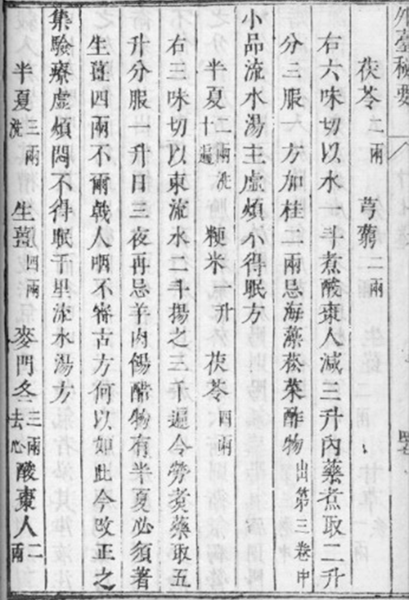 外臺秘要
茯苓二兩 芎藭二兩
右六味切以水一斗煮酸棗人減三升內藥煮取二升
分三服一方加桂二兩忌海藻菘菜酢物出第三卷中
小品流水湯主虛煩不得眠方
半夏二兩洗十遍 粳米一升 茯苓四兩
右三味切以東流水二斗揚之三千遍令勞煮藥取五
升分服一升日三夜再忌羊肉餳醋物有半夏必須著
生薑四兩不爾戟人咽不審古方何以如此今改正之
集驗療虛煩悶不得眠千里流水湯方
半夏三兩洗 生薑四兩 麥門冬三兩去心 酸棗人二兩